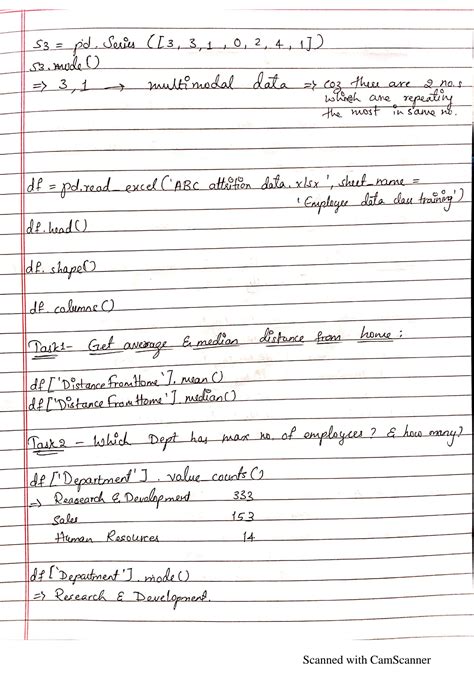 S3 = pd. Series ([3, 3, 1, 0, 2, 4, 1])
S3.mode()
=> 3, 1 → multimodal data => coz there are 2 no.s
which are repeating
the most in same no.
df = pd.read_excel ('ABC attrition data.xlsx', sheet_name =
'Employee data dau training')
df.head()
df.shape()
df.columns()
Task1- Get average & median distance from home :
df ['DistanceFromHome'].mean()
df ['DistanceFromHome'].median()
Task 2 - Which Dept has max no. of employees? & how many?
df ['Department'] . value counts()
=> Reasearch & Development 333
Sales 153
Human Resources 14
df ['Department'].mode()
=> Research & Development.
Scanned with CamScanner